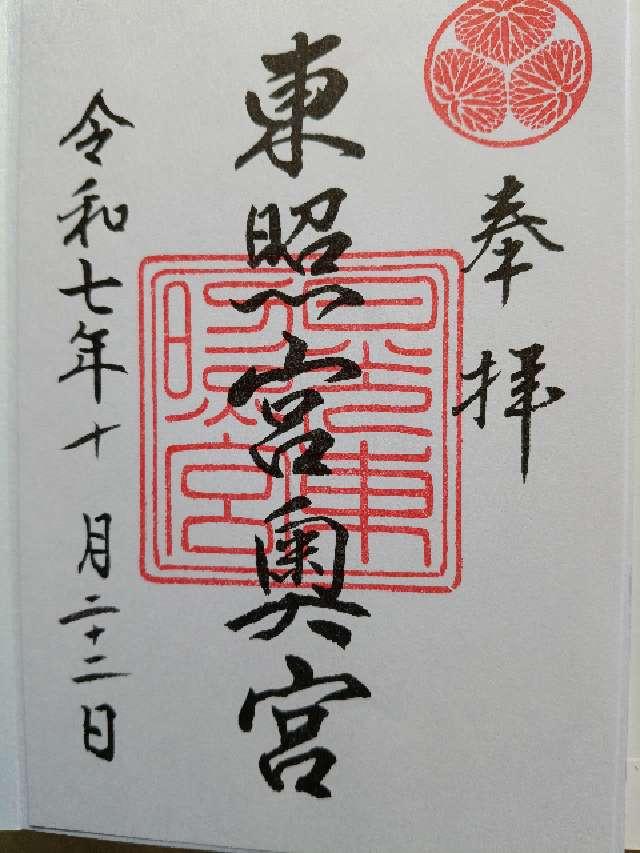 奉拝
東照宮奥宮
日光東照宮
令和七年十月二十二日